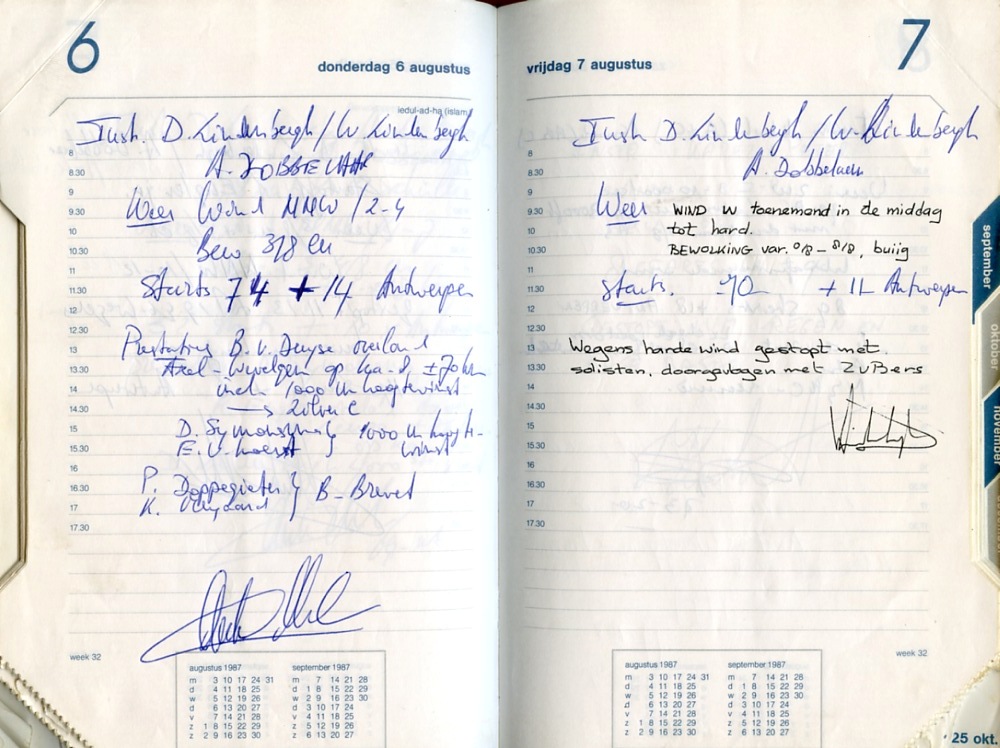 6
donderdag 6 augustus
iedul-ad-ha (islam)
Instr. D. Lindenbergh / W. Lindenbergh
8
8.30
A. DOBBELAAR
9
Weer Wind NNW / 2-4
9.30
10
Bew 3/8 cu
10.30
11
Starts 74 + 14 Antwerpen
11.30
12
12.30
Prestaties B. v. Duyse overland
13
Axel - Wevelgem op Ka-8 ± 70 km
13.30
incl. 1000 m hoogtewinst
14
→ zilver C
14.30
15
1000 m hoogte-
E. v.
winst
15.30
16
P. } B-Brevet
16.30
K.
17
17.30
week 32
augustus 1987
m 3 10 17 24 31
d 4 11 18 25
w 5 12 19 26
d 6 13 20 27
v 7 14 21 28
z 1 8 15 22 29
z 2 9 16 23 30
september 1987
m 7 14 21 28
d 1 8 15 22 29
w 2 9 16 23 30
d 3 10 17 24
v 4 11 18 25
z 5 12 19 26
z 6 13 20 27
7
vrijdag 7 augustus
Instr. D. Lindenbergh / W. Lindenbergh
8
8.30
A. Dobbelaar
9
Weer WIND W toenemend in de middag
9.30
tot hard.
10
BEWOLKING var. 0/8 - 8/8, buiig
10.30
11
Starts. 70 + 11 Antwerpen
11.30
12
12.30
Wegens harde wind gestopt met
13
solisten, doorgevlogen met 2 uBers
13.30
14
14.30
15
15.30
16
16.30
17
17.30
week 32
augustus 1987
m 3 10 17 24 31
d 4 11 18 25
w 5 12 19 26
d 6 13 20 27
v 7 14 21 28
z 1 8 15 22 29
z 2 9 16 23 30
september 1987
m 7 14 21 28
d 1 8 15 22 29
w 2 9 16 23 30
d 3 10 17 24
v 4 11 18 25
z 5 12 19 26
z 6 13 20 27
september
oktober
november
25 okt.